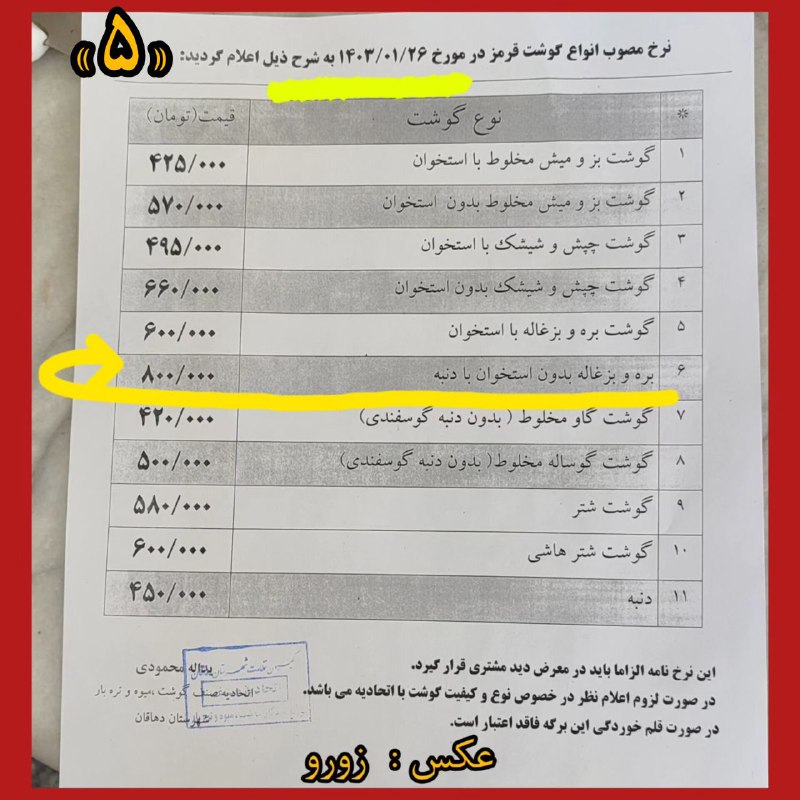 «۵»
نرخ مصوب انواع گوشت قرمز در مورخ ۱۴۰۳/۰۱/۲۶ به شرح ذیل اعلام گردید:
* نوع گوشت قیمت(تومان)
۱ گوشت بز و میش مخلوط با استخوان ۴۲۵/۰۰۰
۲ گوشت بز و میش مخلوط بدون استخوان ۵۷۰/۰۰۰
۳ گوشت چپش و شیشک با استخوان ۴۹۵/۰۰۰
۴ گوشت چپش و شیشک بدون استخوان ۶۶۰/۰۰۰
۵ گوشت بره و بزغاله با استخوان ۶۰۰/۰۰۰
۶ بره و بزغاله بدون استخوان با دنبه ۸۰۰/۰۰۰
۷ گوشت گاو مخلوط ( بدون دنبه گوسفندی) ۴۲۰/۰۰۰
۸ گوشت گوساله مخلوط( بدون دنبه گوسفندی) ۵۰۰/۰۰۰
۹ گوشت شتر ۵۸۰/۰۰۰
۱۰ گوشت شتر هاشی ۶۰۰/۰۰۰
۱۱ دنبه ۴۵۰/۰۰۰
این نرخ نامه الزاما باید در معرض دید مشتری قرار گیرد.
در صورت لزوم اعلام نظر در خصوص نوع و کیفیت گوشت با اتحادیه می باشد.
در صورت قلم خوردگی این برگه فاقد اعتبار است.
یداله محمودی
اتحادیه صنف گوشت ،میوه و تره بار
شهرستان دهاقان
عکس : زورو